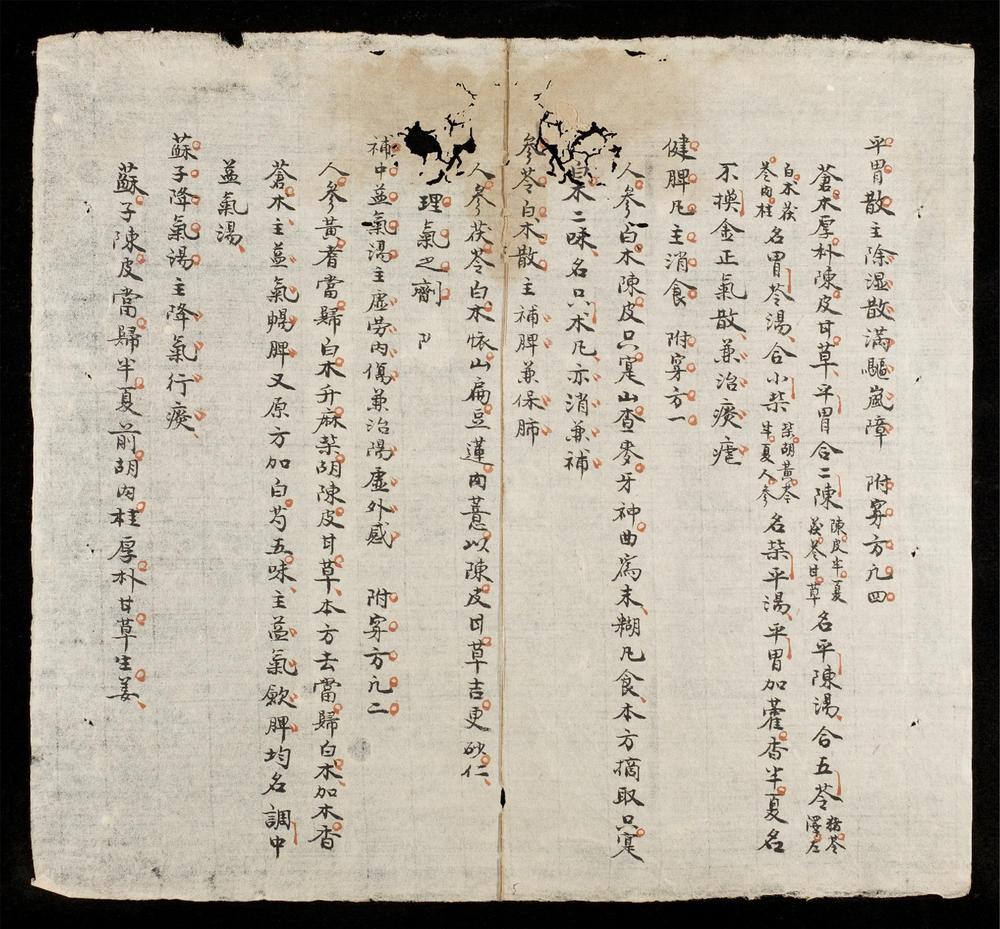 平胃散主除湿散滿驅嵐障 附穿方凢四
蒼朮厚朴陳皮甘草平胃合二陳陳皮半夏茯苓甘草名平陳湯合五苓猪苓澤左
白朮茯苓肉桂名胃苓湯合小柴柴胡黃芩半夏人參名柴平湯平胃加藿香半夏名
不換金正氣散兼治痰瘧
健脾凡主消食 附穿方一
人參白朮陳皮只寔山查麥牙神曲為末糊凡食本方摘取只寔
白朮二味名只朮凡亦消兼補
參苓白朮散主補脾兼保肺
人參茯苓白朮懷山扁豆蓮肉薏苡陳皮甘草吉更砂仁
理氣之劑
補中益氣湯主虛勞內傷兼治陽虛外感 附穿方凢二
人參黃耆當歸白朮升麻柴胡陳皮甘草本方去當歸白朮加木香
蒼朮主益氣暢脾又原方加白芍五味主益氣歛脾均名調中
益氣湯
蘇子降氣湯主降氣行痰
蘇子陳皮當歸半夏前胡肉桂厚朴甘草生姜